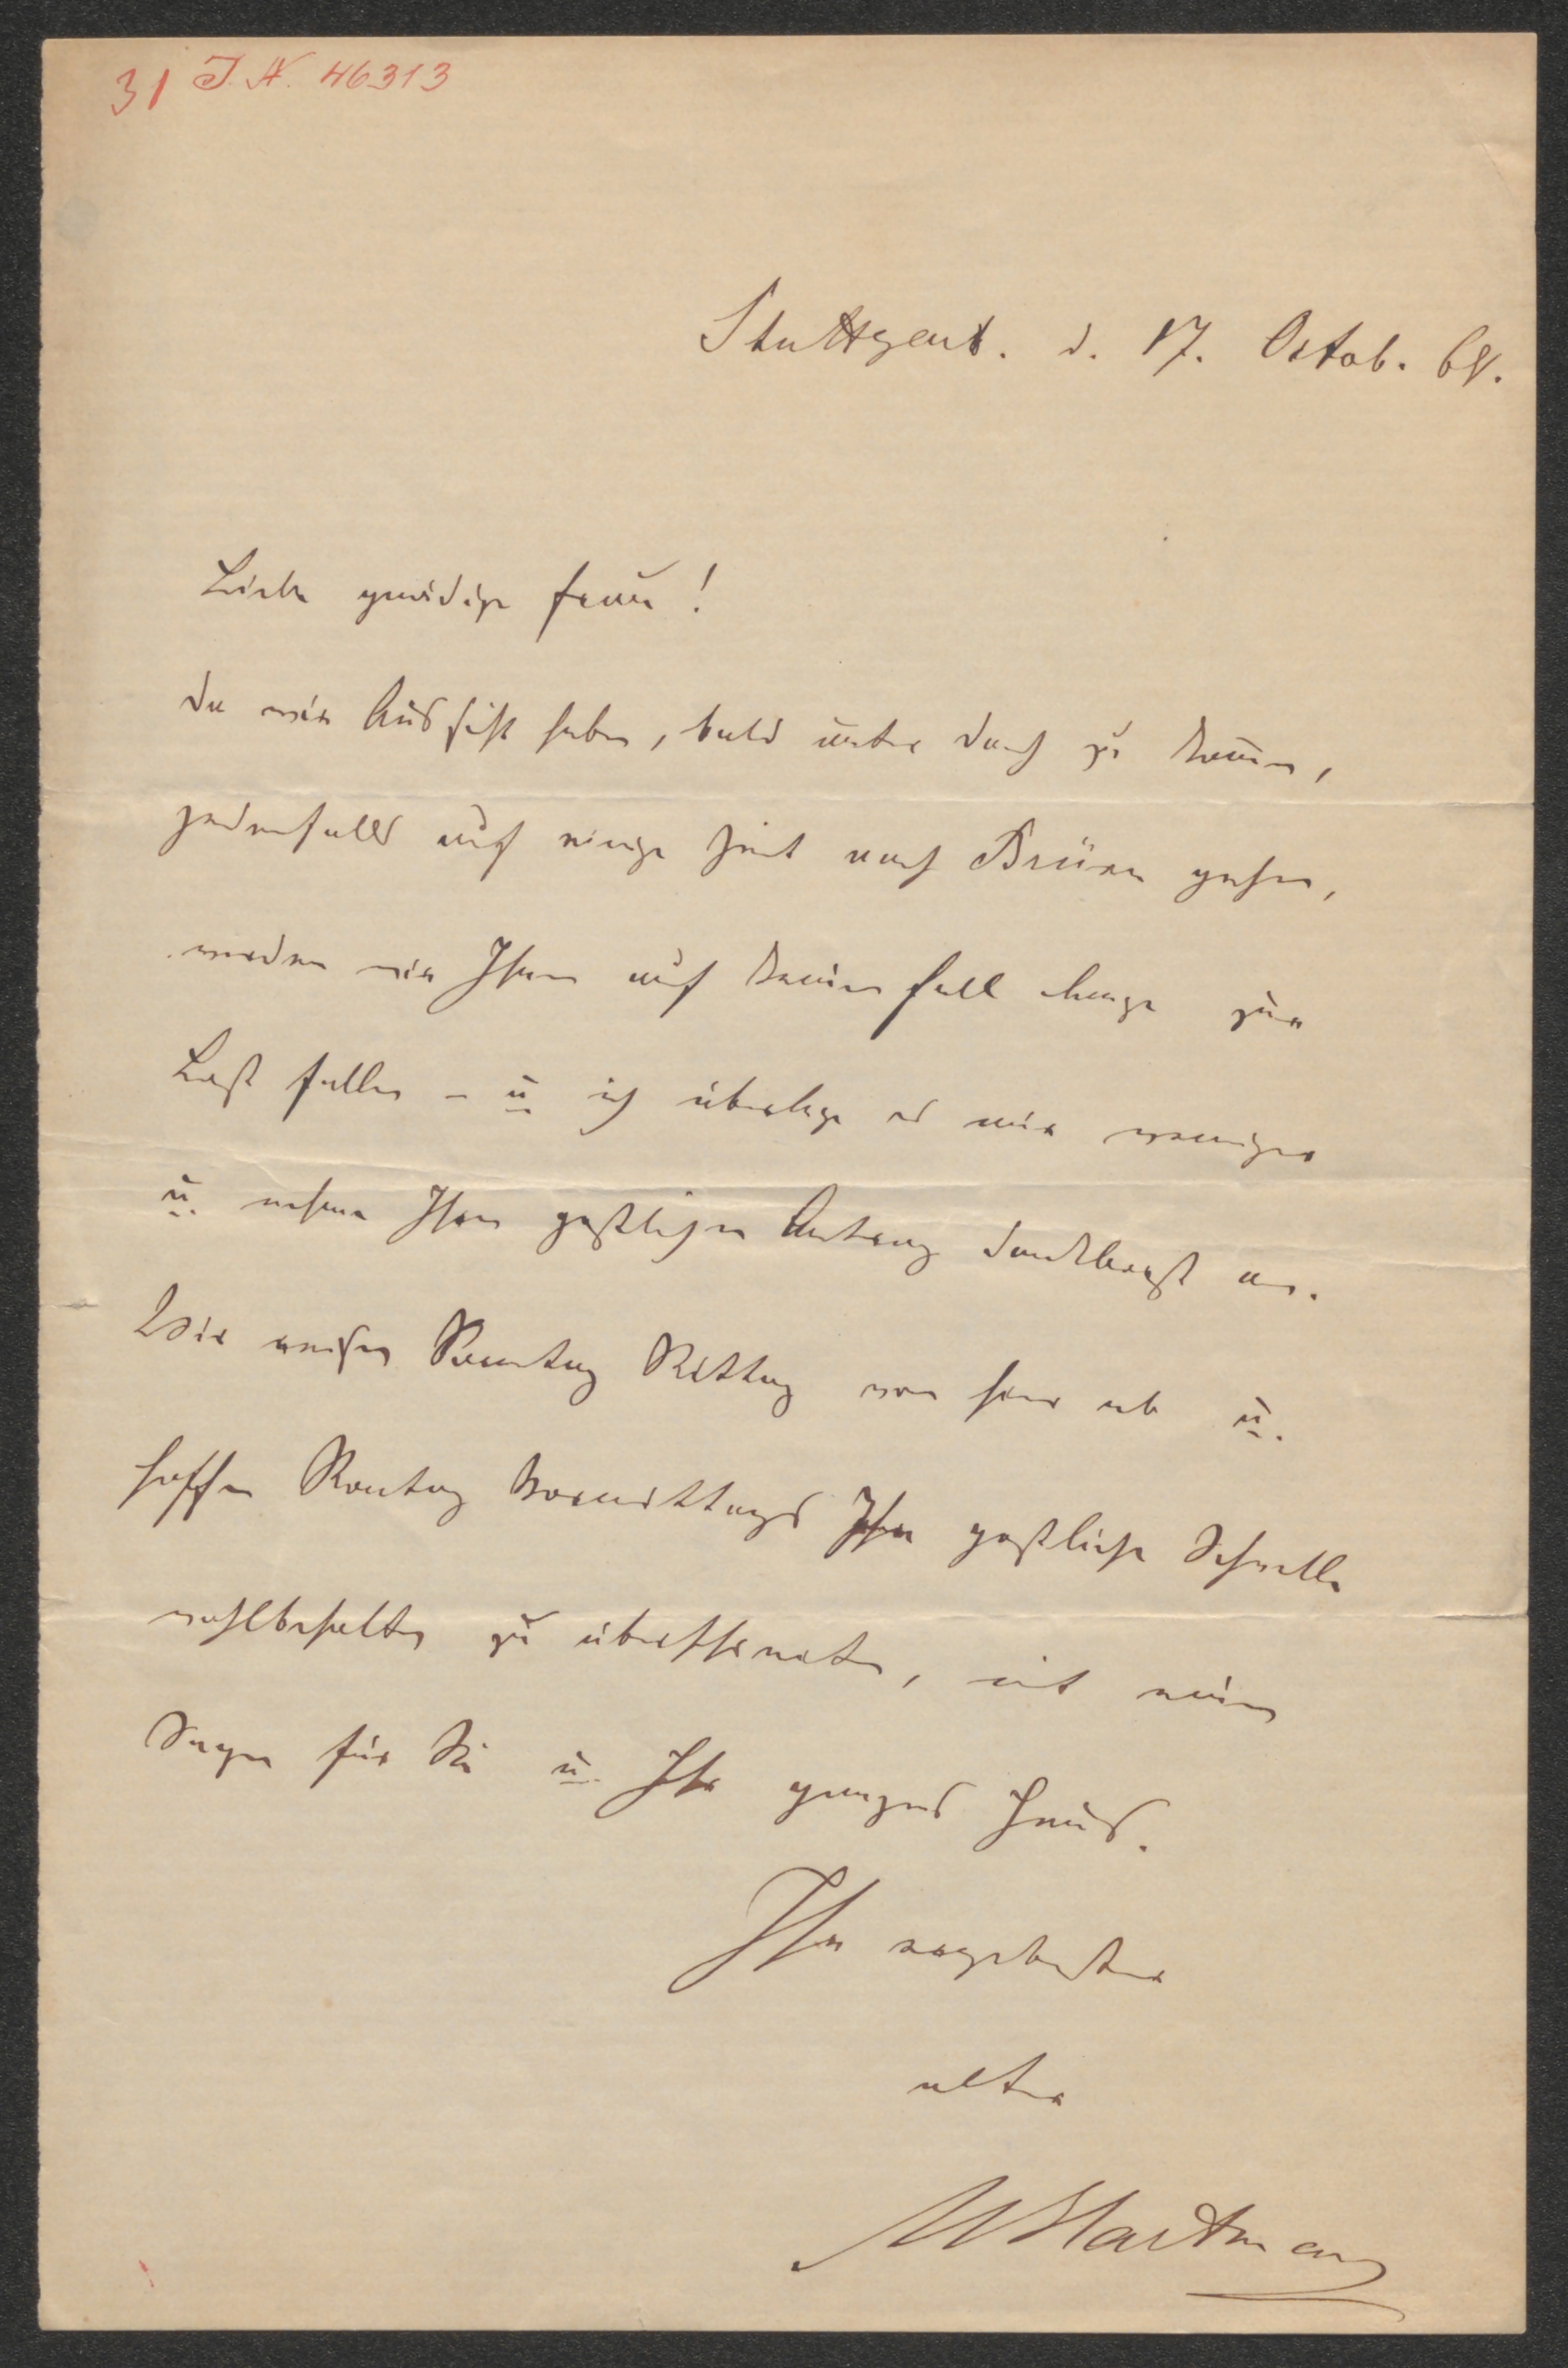 31 I.N. 46313
Stuttgart. d. 17. Octob. 68.
Liebe gnädige Frau!
Da wir Aussicht haben, bald unter Dach zu kommen,
jedenfalls auf einige Zeit nach Brünn gehen,
werden wir Ihnen auf keinen Fall lange zur
Last fallen – u ich überlege es mir weniger
u. nehme Ihren gastlichen Antrag dankbarst an.
Wir reisen Sonntag Mittag von hier ab u.
hoffen Montag Vormittags Ihre gastliche Schwelle
wohlbehalten zu übertreten, mit einem
Segen für Sie u. Ihr ganzes Haus.
Ihr ergebenster
alter
MHartmann